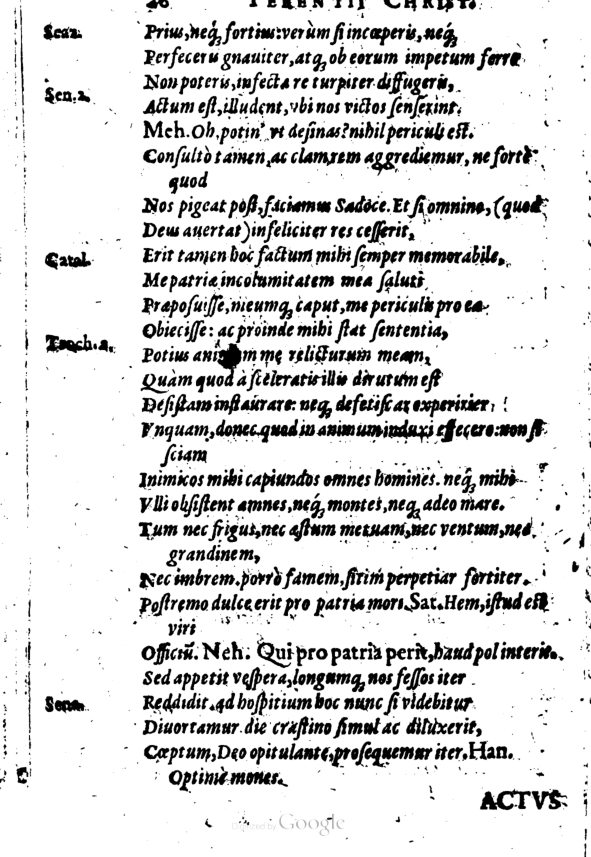 26 TERENTII CHRIST.
Scaz. Prius, neq́, fortius: verùm si incœperis, neq́,
Perfeceris gnauiter, atq, ob eorum impetum ferre
Non poteris, infecta re turpiter diffugeris,
Sen. 2. Actum est, illudent, vbi nos victos senserint.
Meh. Oh, potin' vt desinas? nihil periculi est.
Consultò tamen, ac clam rem aggrediemur, ne fortè
quod
Nos pigeat pòst, faciamus Sadoce. Et si omnino, (quod
Deus auertat) infeliciter res cesserit,
Catal. Erit tamen hoc factum mihi semper memorabile,
Me patriæ incolumitatem meæ saluti
Præposuisse, meumq, caput, me periculis pro ea
Obiecisse: ac proinde mihi stat sententia,
Troch. 2. Potius animam me relicturum meam,
Quàm quod à sceleratis illis dirutum est
Desistam instaurare: neq, defetiscar experirier,
Vnquam, donec quod in animum induxi effecero: non si
sciam
Inimicos mihi capiundos omnes homines. neq́, mihi
Vlli obsistent amnes, neq́, montes, neq, adeo mare.
Tum nec frigus, nec æstum metuam, nec ventum, neq
grandinem,
Nec imbrem. porrò famem, sitim perpetiar fortiter.
Postremo dulce erit pro patria mori. Sat. Hem, istud est
viri
Officiũ. Neh. Qui pro patria perit, haud pol interit.
Sed appetit vespera, longumq, nos fessos iter
Sena. Reddidit. ad hospitium hoc nunc si videbitur
Diuortamur. die crastino simul ac diluxerit,
Cœptum, Deo opitulante, prosequemur iter. Han.
Optimè mones.
ACTVS
Digitized by Google